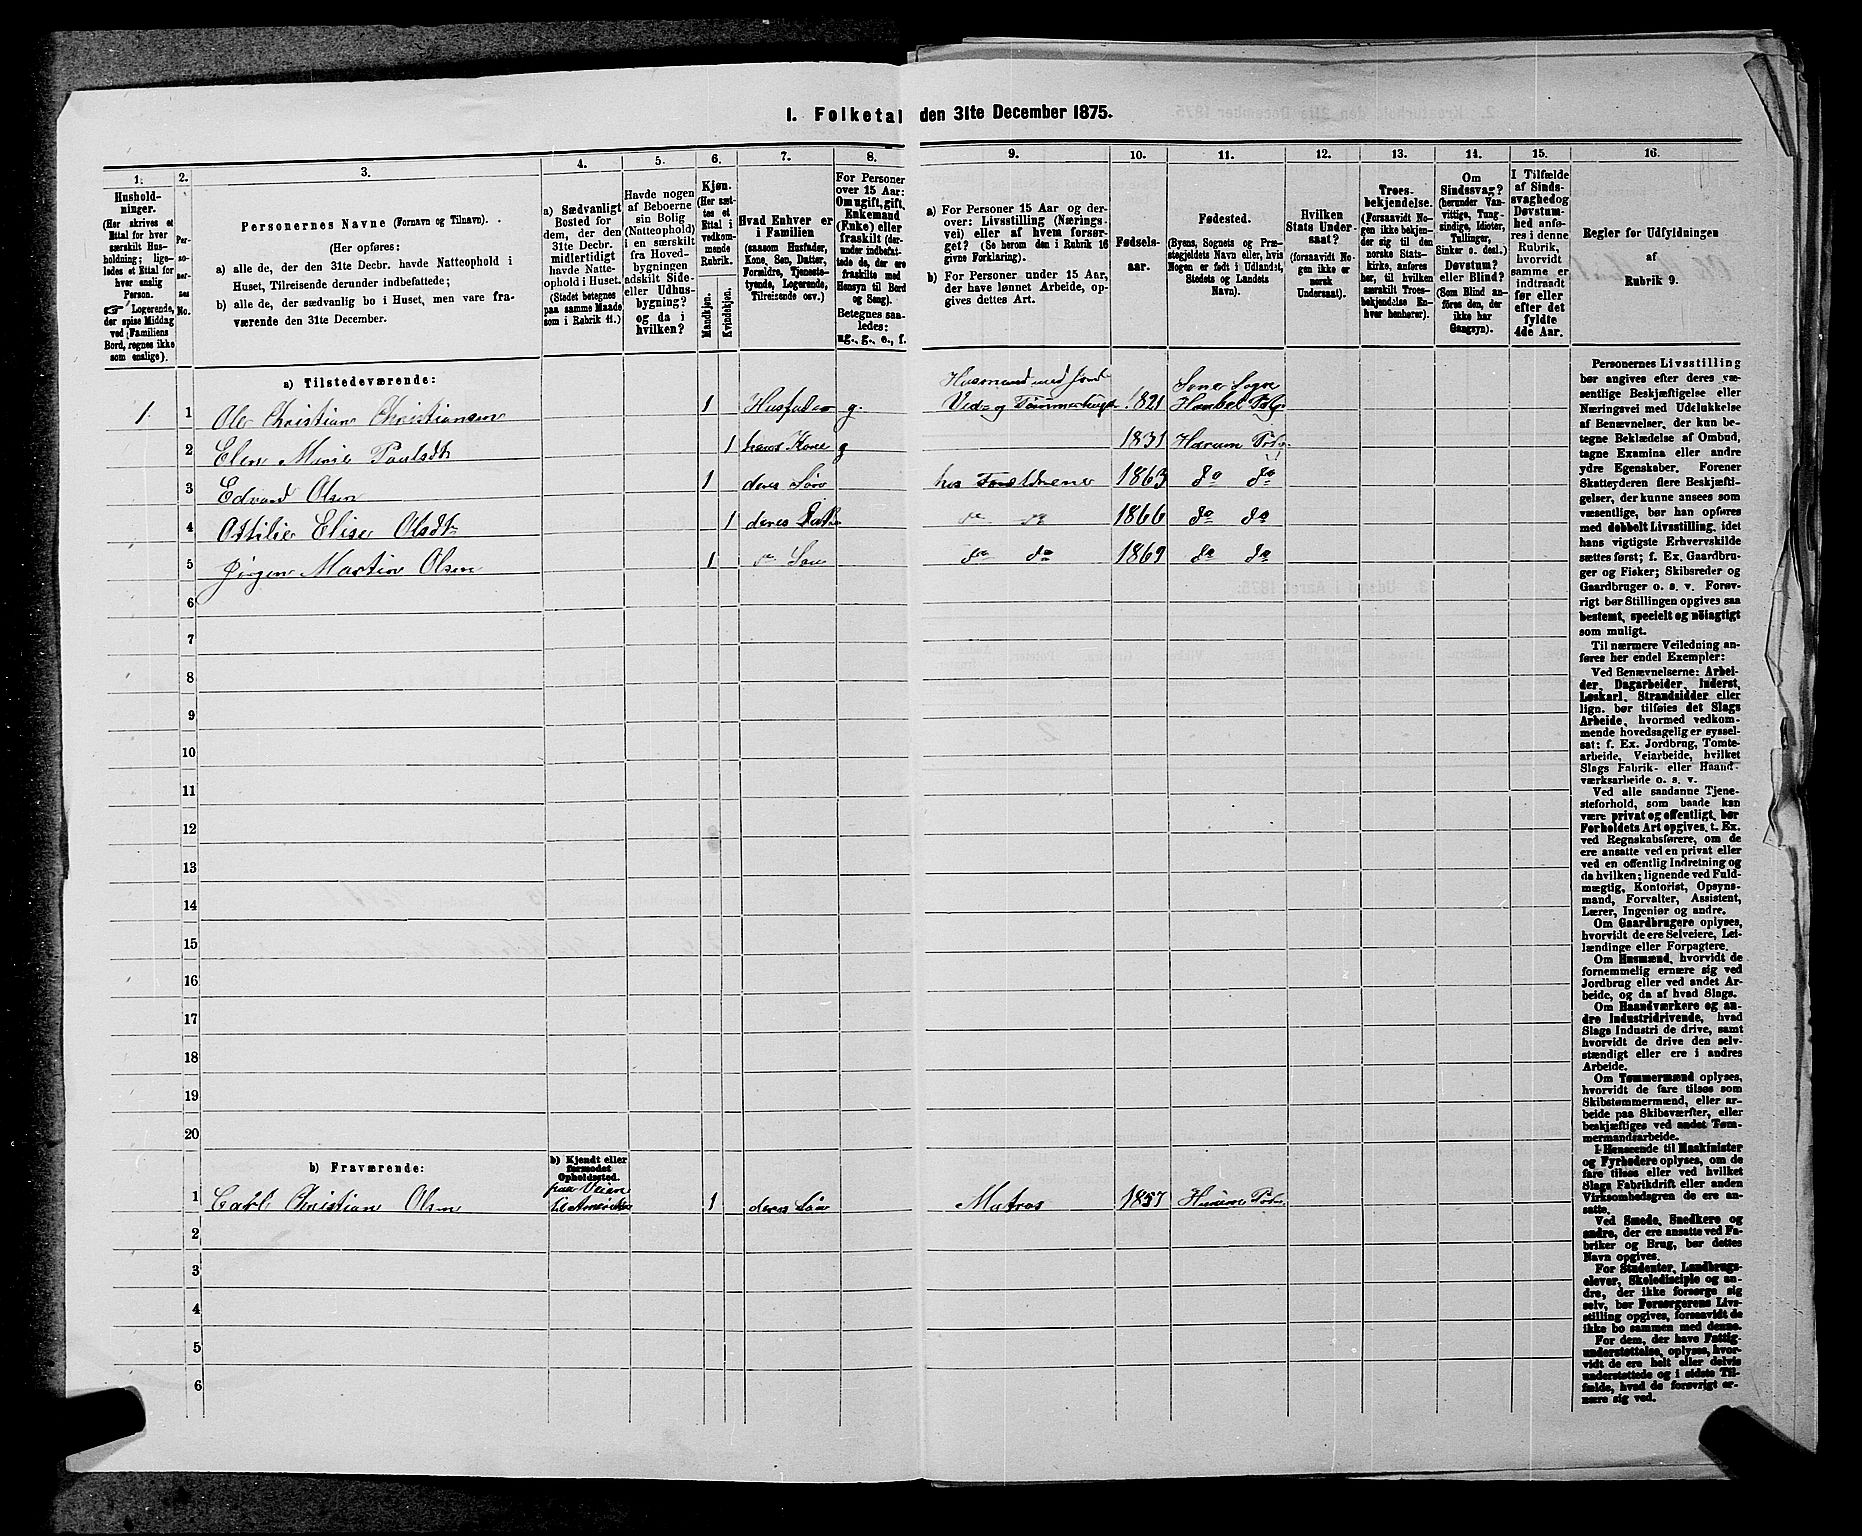 I. Folketal den 31te December 1875.
1.
2.
3.
4.
5.
6.
7.
8.
9.
10.
11.
12.
13.
14.
15.
16.
Hushold-
ninger.
(Her skrives et
Ettal for hver
særskilt Hus-
holdning; lige-
ledes et Ettal for
hver enslig
Person.
☞ Logerende,
der spise Middag
ved Familiens
Bord, regnes ikke
som enslige).
Per-
soner-
nes
No.
Personernes Navne (Fornavn og Tilnavn).
(Her opføres:
a) alle de, der den 31te Decbr. havde Natteophold i
Huset, Tilreisende derunder indbefattede;
b) alle de, der sædvanlig bo i Huset, men vare fra-
værende den 31te December.
a) Sædvanligt
Bosted for
dem, der den
31te Decbr.
midlertidigt
havde Natte-
ophold i Huset.
(Stedet betegnes
paa samme Maade
som i Rubrik 11.)
Havde nogen
af Beboerne
sin Bolig
(Natteophold)
i en særskilt
fra Hoved-
bygningen
adskilt Side-
eller Udhus-
bygning?
og da i
hvilken?
Kjøn.
(Her sæt-
tes et
Ettal i
vedkom-
mende
Rubrik.
Mandkjøn.
Kvindekjøn.
Hvad Enhver er
i Familien
(saasom Husfader,
Kone, Søn, Datter,
Forældre, Tjeneste-
tyende, Logerende,
Tilreisende osv.)
For Personer
over 15 Aar:
Om ugift, gift,
Enkemand
(Enke) eller
fraskilt (der-
under indbefat-
tede de, der ere
fraskilte med
Hensyn til Bord
og Seng).
Betegnes saa-
ledes:
ug., g., e., f.
a) For Personer 15 Aar og der-
over: Livsstilling (Nærings-
vei) eller af hvem forsør-
get? (Se herom den i Rubrik 16
givne Forklaring).
b) For Personer under 15 Aar,
der have lønnet Arbeide, op-
gives dettes Art.
Fødsels-
aar.
Fødested.
(Byens, Sognets og Præ-
stegjeldets Navn, eller, hvis
Nogen er født i Udlandet,
Stedets og Landets
Navn).
Hvilken
Stats Under-
saat?
(forsaavidt No-
gen ikke er
norsk
Undersaat).
Troes-
bekjendelse.
(Forsaavidt No-
gen ikke bekjen-
der sig til den
norske Stats-
kirke, anføres
her, til hvilken
særskilt Troes-
bekjendelse En-
hver henhører).
Om
Sindssvag?
(herunder Van-
vittige, Tung-
sindige, Idioter,
Tullinger,
Sinker o. desl.)
Døvstum?
eller Blind?
(Som Blind an-
føres den, der
ikke har
Gangsyn).
I Tilfælde
af Sinds-
svaghed og
Døvstum-
hed anfø-
res i denne
Rubrik,
hvorvidt
samme er
indtraadt
før eller
efter det
fyldte
4de Aar.
Regler for Udfyldningen
af
Rubrik 9.
a) Tilstedeværende:
1 1 Ole Christian Christiansen 1 Husfader g. Husmand med Jord Ved- og Tømmerhugger 1821 Sone Sogn
2 Elen Marie Paulsdt 1 hans Kone g 1831 Hurum
3 Edvard Olsen 1 deres Søn hos Forældrene 1863 do do
4 Ottilie Elise Olsdt 1 deres Datter do do 1866 do do
5 Jørgen Martin Olsen 1 do Søn do do 1869 do do
6
7
8
9
10
11
12
13
14
15
16
17
18
19
20
b) Fraværende:
b) Kjendt eller
formodet
Opholdssted.
1 Carl Christian Olsen paa Veien til Amerika 1 deres Søn Matros 1857 Hurum
2
3
4
5
6
Personernes Livsstilling
bør angives efter deres væ-
sentlige Beskjæftigelse eller
Næringsvei med Udelukkelse
af Benævnelser, der kun be-
tegne Beklædelse af Ombud,
tagne Examina eller andre
ydre Egenskaber. Forener
Skatteyderen flere Beskjæfti-
gelser, der kunne ansees som
væsentlige, bør han opføres
med dobbelt Livsstilling, idet
hans vigtigste Erhvervskilde
sættes først; f. Ex. Gaardbru-
ger og Fisker; Skibsreder og
Gaardbruger o. s. v. Forøv-
rigt bør Stillingen opgives saa
bestemt, specielt og nöiagtigt
som muligt.
Til nærmere Veiledning an-
føres her endel Exempler:
Ved Benævnelserne: Arbei-
der, Dagarbeider, Inderst,
Løskarl, Strandsidder eller
lign. bør tilføies det Slags
Arbeide, hvormed vedkom-
mende hovedsagelig er syssel-
sat: f. Ex. Jordbrug, Tomte-
arbeide, Veiarbeide, hvilket
Slags Fabrik- eller Haand-
værksarbeide o. s. v.
Ved alle saadanne Tjene-
steforhold, som baade kan
være privat og offentligt, bør
Forholdets Art opgives, t. Ex.
ved Regnskabsførere, om de
ere ansatte ved en privat eller
ved en offentlig Indretning og
da hvilken; lignende ved Fuld-
mægtig, Kontorist, Opsyns-
mand, Forvalter, Assistent,
Lærer, Ingeniør og andre.
Om Gaardbrugere oplyses,
hvorvidt de ere Selveiere, Lei-
lændinge eller Forpagtere.
Om Husmænd, hvorvidt de
fornemmelig ernære sig ved
Jordbrug eller ved andet Ar-
beide, og da af hvad Slags.
Om Haandværkere og an-
dre Industridrivende, hvad
Slags Industri de drive, samt
hvorvidt de drive den selv-
stændigt eller ere i andres
Arbeide.
Om Tømmermænd oplyses,
hvorvidt de fare tilsøs som
Skibstømmermænd, eller ar-
beide paa Skibsværfter, eller
beskjæftiges ved andet Tøm-
mermandsarbeide.
I Henseende til Maskinister
og Fyrbødere oplyses, om de
fare tilsøs eller ved hvilket
Slags Fabrikdrift eller anden
Virksomhedsgren de ere an-
satte.
Ved Smede, Snedkere og
andre, der ere ansatte ved Fa-
briker og Brug, bør dettes
Navn opgives.
For Studenter, Landbrugs-
elever, Skoledisciple og an-
dre, der ikke forsørge sig
selv, bør Forsørgerens Livs-
stilling opgives, forsaavidt de
ikke bo sammen med denne.
For dem, der have Fattig-
understøttelse, oplyses, hvor-
vidt de ere helt eller delvis
understøttede og i sidste Til-
fælde, hvad de forøvrigt er-
nære sig ved.